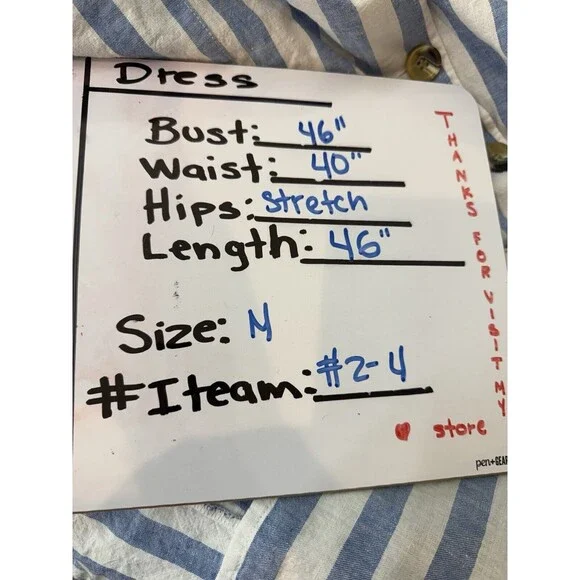 Dress
Bust: 46"
Waist: 40"
Hips: stretch
Length: 46"
Size: M
#Iteam: #2-4
THANKS FOR VISIT MY
store
pen+GEAR